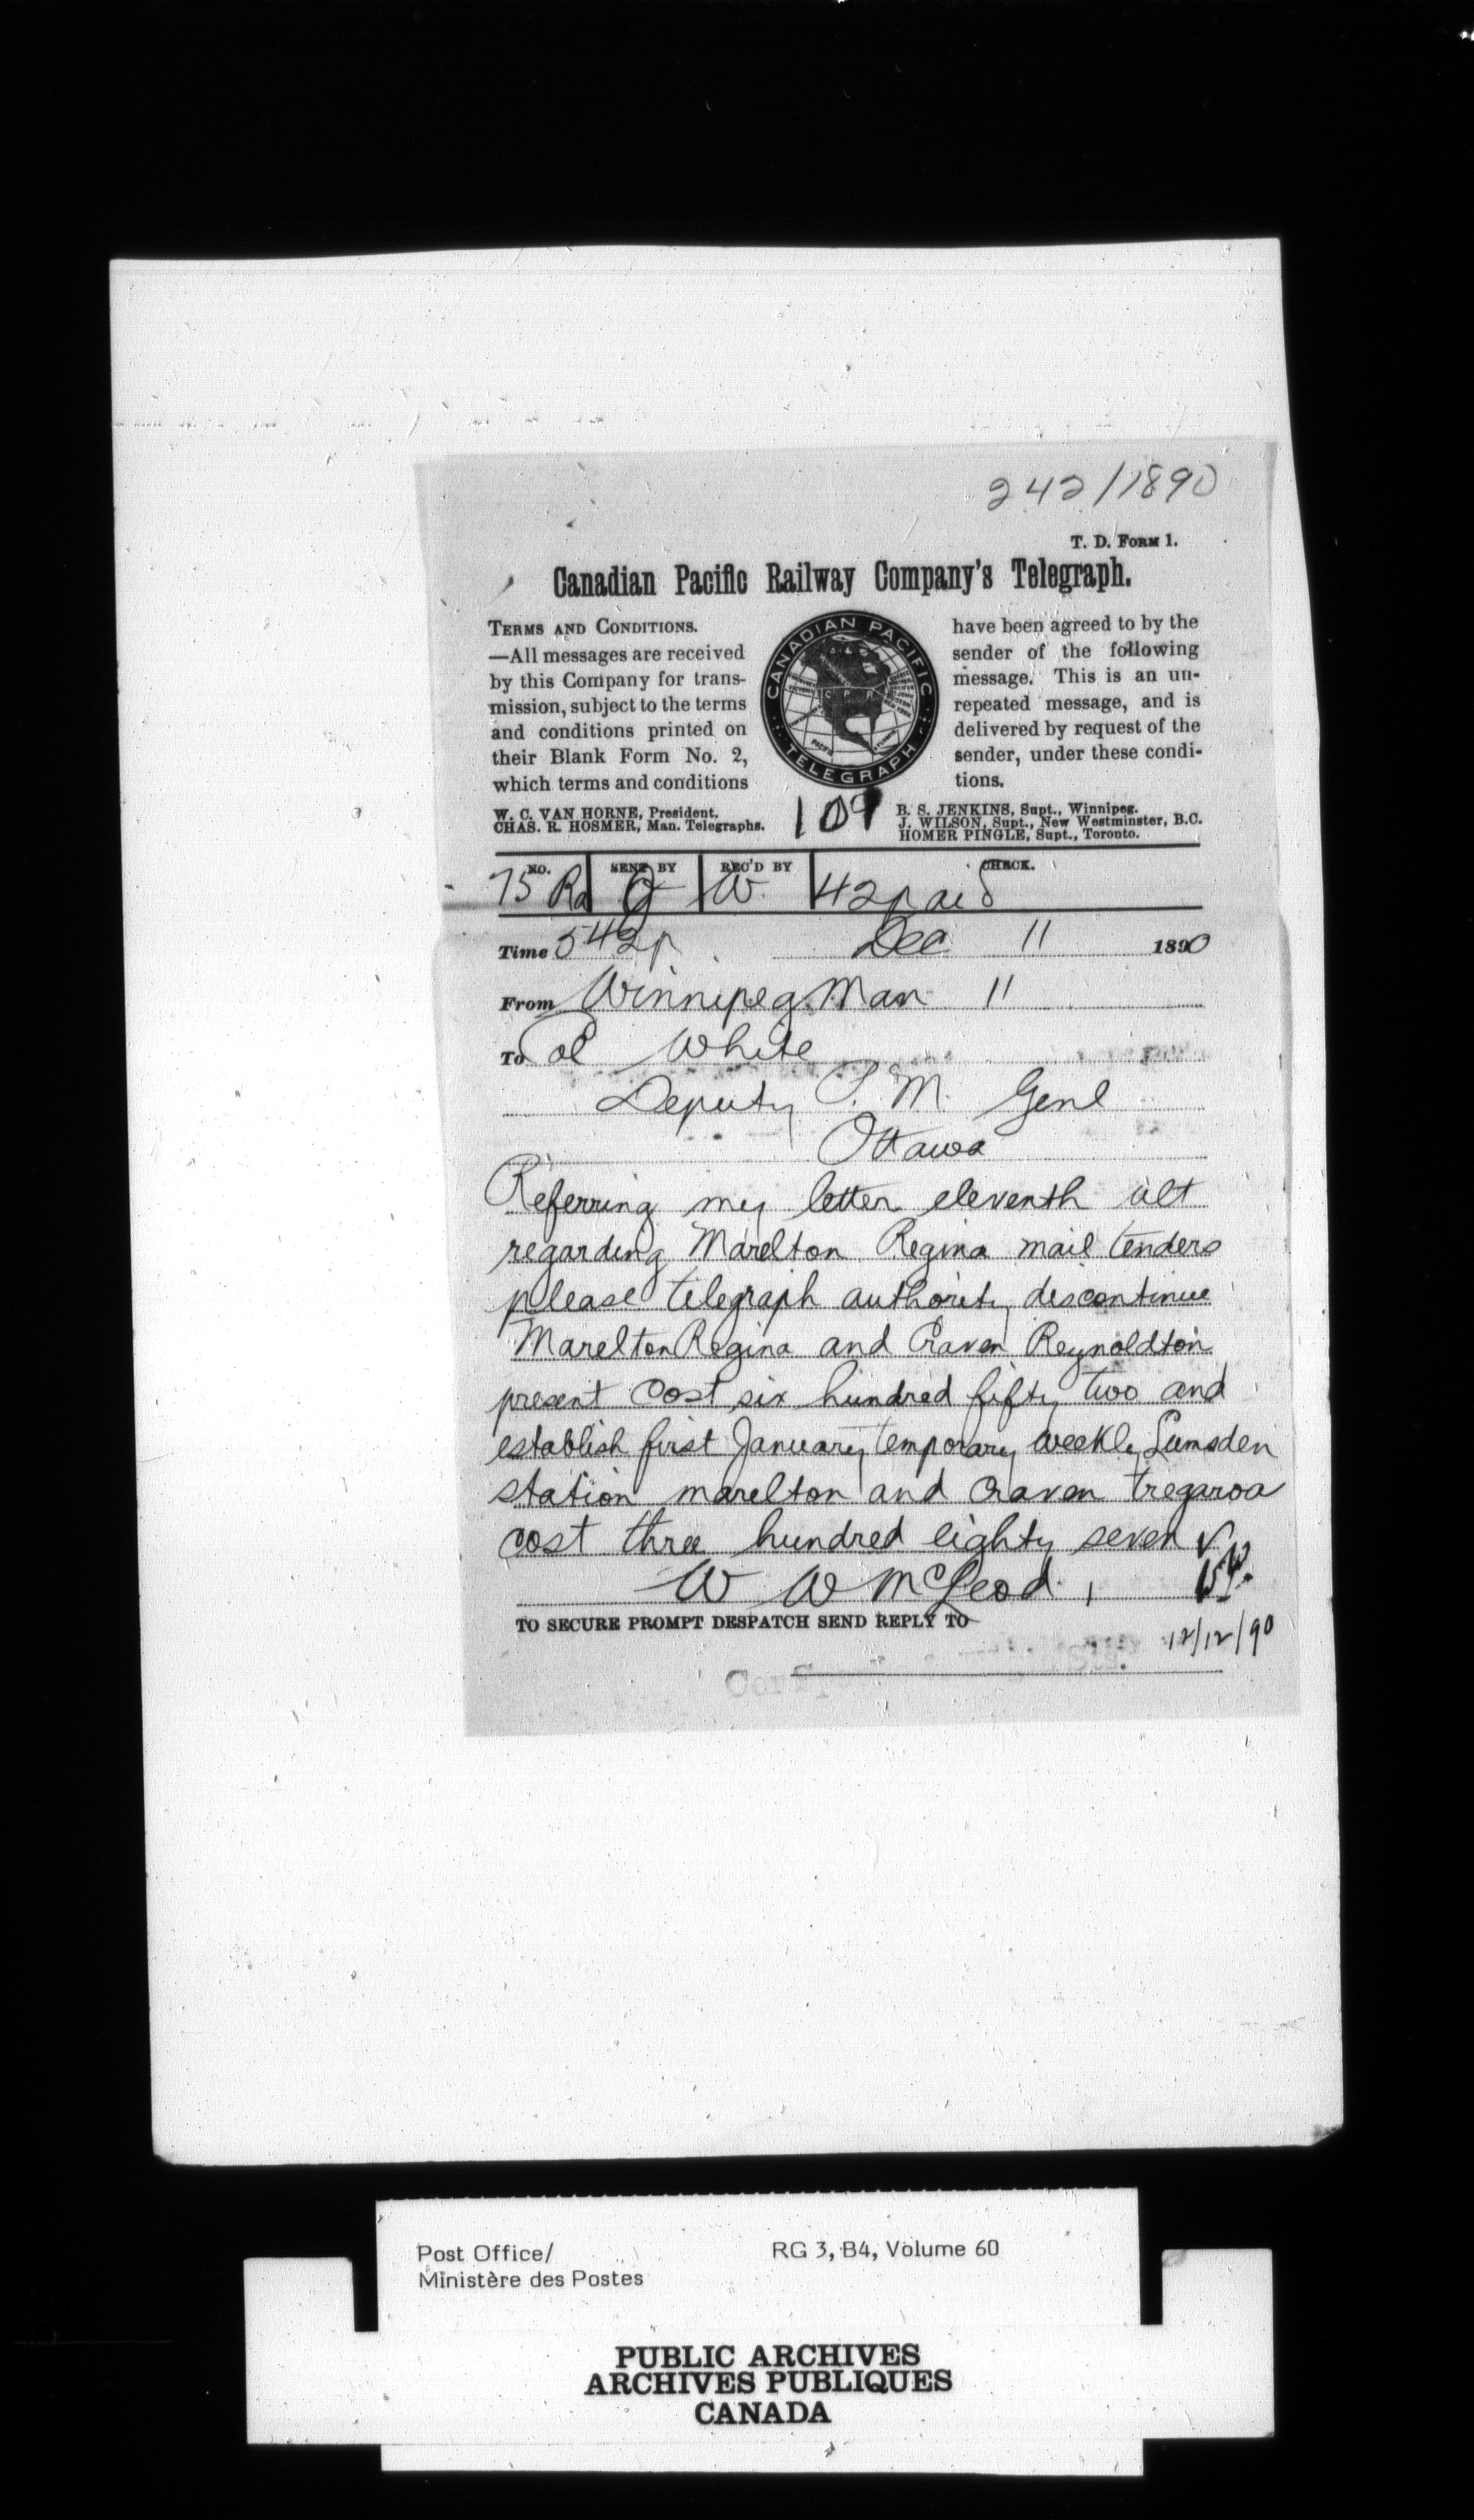 242/1890
T. D. FORM 1.
Canadian Pacific Railway Company's Telegraph.
TERMS AND CONDITIONS.
—All messages are received
by this Company for trans-
mission, subject to the terms
and conditions printed on
their Blank Form No. 2,
which terms and conditions
CANADIAN PACIFIC
C. P. R.
TELEGRAPH
have been agreed to by the
sender of the following
message. This is an un-
repeated message, and is
delivered by request of the
sender, under these condi-
tions.
W. C. VAN HORNE, President.
CHAS. R. HOSMER, Man. Telegraphs.
109
B. S. JENKINS, Supt., Winnipeg.
J. WILSON, Supt., New Westminster, B.C.
HOMER PINGLE, Supt., Toronto.
NO. SENT BY REC'D BY CHECK.
75 Ra W. 42 paid
Time 542p Dec 11 1890
From Winnipeg Man 11
To Col White
Deputy P. M. Genl
Ottawa
Referring my letter eleventh ult
regarding Marelton Regina mail tenders
please telegraph authority discontinue
Marelton Regina and Craven Reynoldton
present cost six hundred fifty two and
establish first January temporary weekly Lumsden
station marelton and Craven Tregarva
cost three hundred eighty seven
W W McLeod
TO SECURE PROMPT DESPATCH SEND REPLY TO
12/12/90
Post Office/
Ministère des Postes
RG 3, B4, Volume 60
PUBLIC ARCHIVES
ARCHIVES PUBLIQUES
CANADA